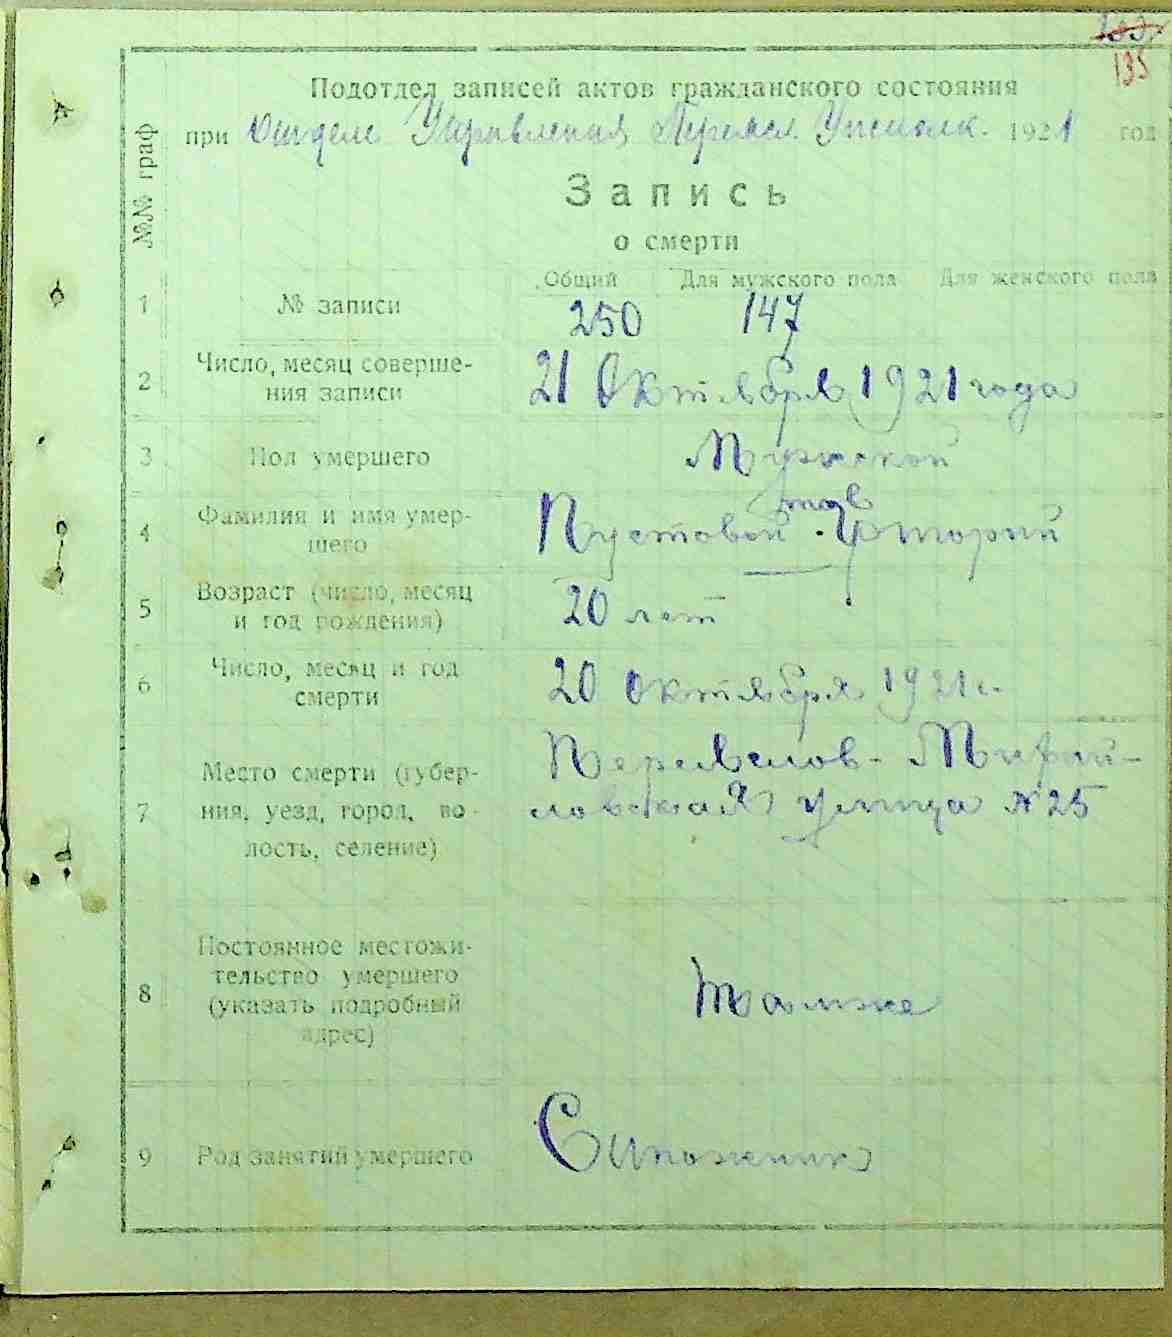 135
Подотдел записей актов гражданского состояния
при Отделе Управления 1921 год
№№ граф
Запись
о смерти
Общий Для мужского пола Для женского пола
1 № записи 250 147
2 Число, месяц соверше-
ния записи 21 Октября 1921 года
3 Пол умершего Мужской
4 Фамилия и имя умер-
шего Пустовой
5 Возраст (число, месяц
и год рождения) 20 лет
6 Число, месяц и год
смерти 20 октября 1921 г.
7 Место смерти (губер-
ния, уезд, город, во-
лость, селение) улица № 25
8 Постоянное местожи-
тельство умершего
(указать подробный
адрес) Тамже
9 Род занятий умершего Сапожник